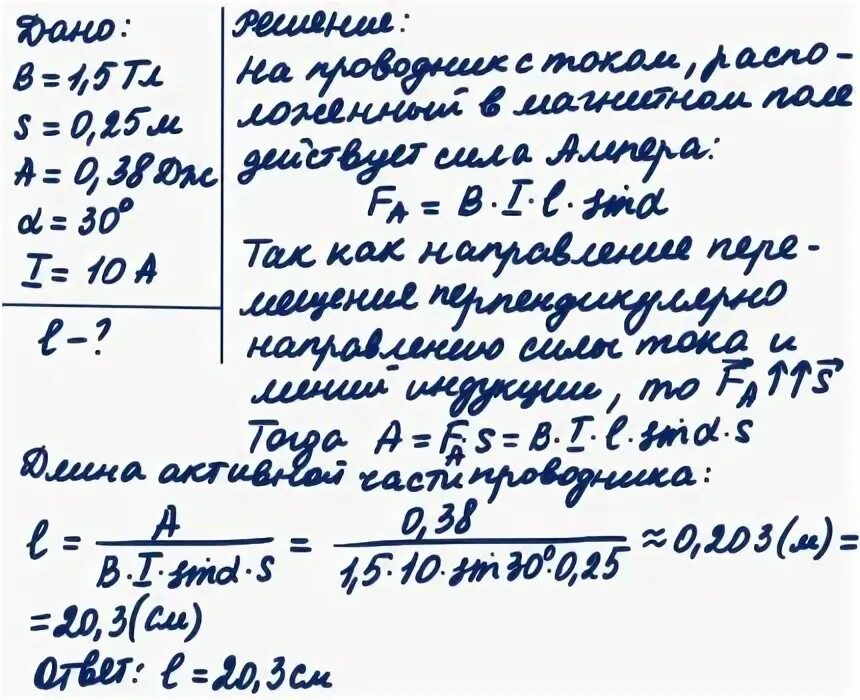 Дано:
B = 1,5 Тл
s = 0,25 м
A = 0,38 Дж
α = 30°
I = 10 А
l – ?
Решение:
На проводник с током, распо-
ложенный в магнитном поле
действует сила Ампера:
F_A = B · I · l · sinα
Так как направление пере-
мещение перпендикулярно
направлению силы тока и
линий индукции, то F⃗_A ↑↑ s⃗
Тогда A = F_A · s = B · I · l · sinα · s
Длина активной части проводника:
l = A / (B · I · sinα · s) = 0,38 / (1,5 · 10 · sin30° · 0,25) ≈ 0,203 (м) =
= 20,3 (см)
Ответ: l = 20,3 см